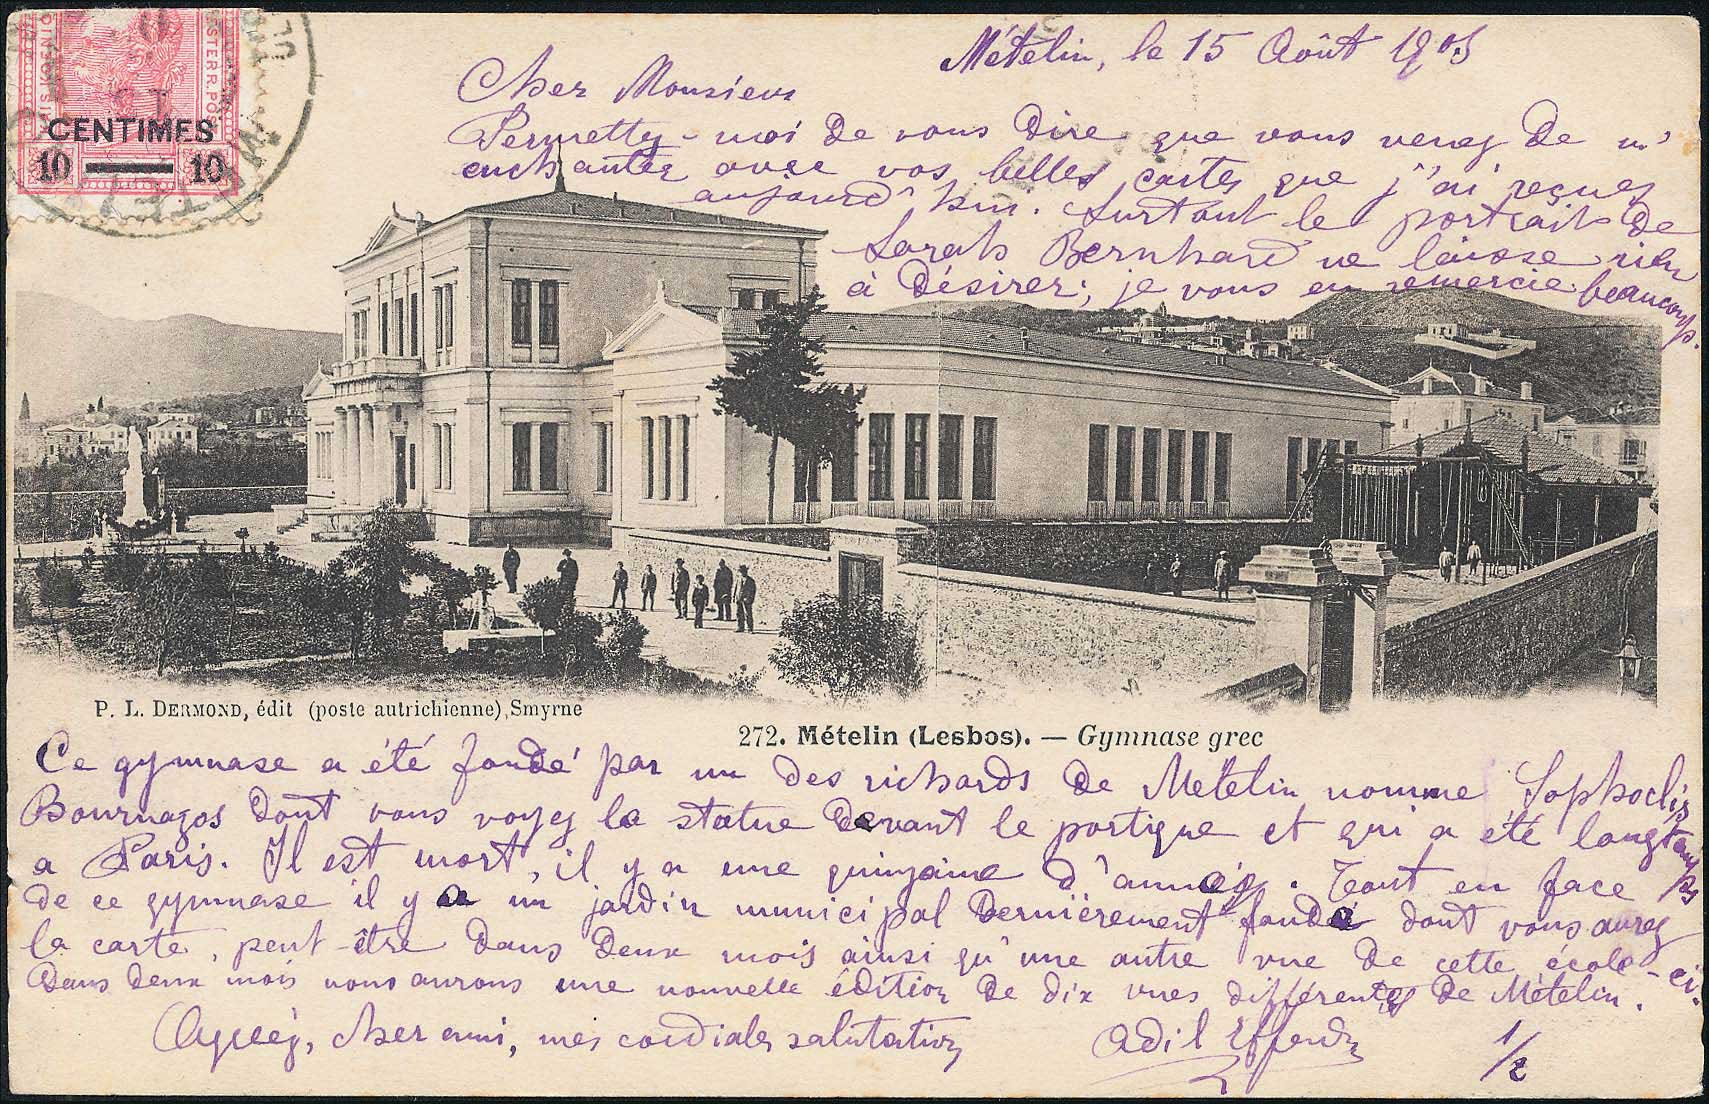 OSTERR. POST
CENTIMES
10 10
Mételin, le 15 Août 1905
Cher Monsieur
Permettez-moi de vous dire que vous venez de m'
enchanter avec vos belles cartes que j'ai reçues
aujourd'hui. Surtout le portrait de
Sarah Bernhard ne laisse rien
à désirer; je vous en remercie beaucoup.
P. L. DERMOND, édit (poste autrichienne), Smyrne
272. Mételin (Lesbos). — Gymnase grec
Ce gymnase a été fondé par un des richards de Mételin nommé Sophoclis
Bournazos dont vous voyez la statue devant le portique et qui a été longtemps
a Paris. Il est mort, il y a une quinzaine d'années. Tout en face
de ce gymnase il y a un jardin municipal dernièrement fondé dont vous aurez
la carte, peut-être dans deux mois ainsi qu'une autre vue de cette école-ci.
Dans deux mois nous aurons une nouvelle édition de dix vues différentes de Mételin.
Agréez, cher ami, mes cordiales salutations
Adil Effendi
1/2